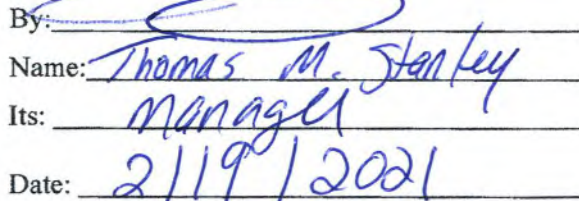 By:
Name: Thomas M. Stanley
Its: Manager
Date: 2/19/2021